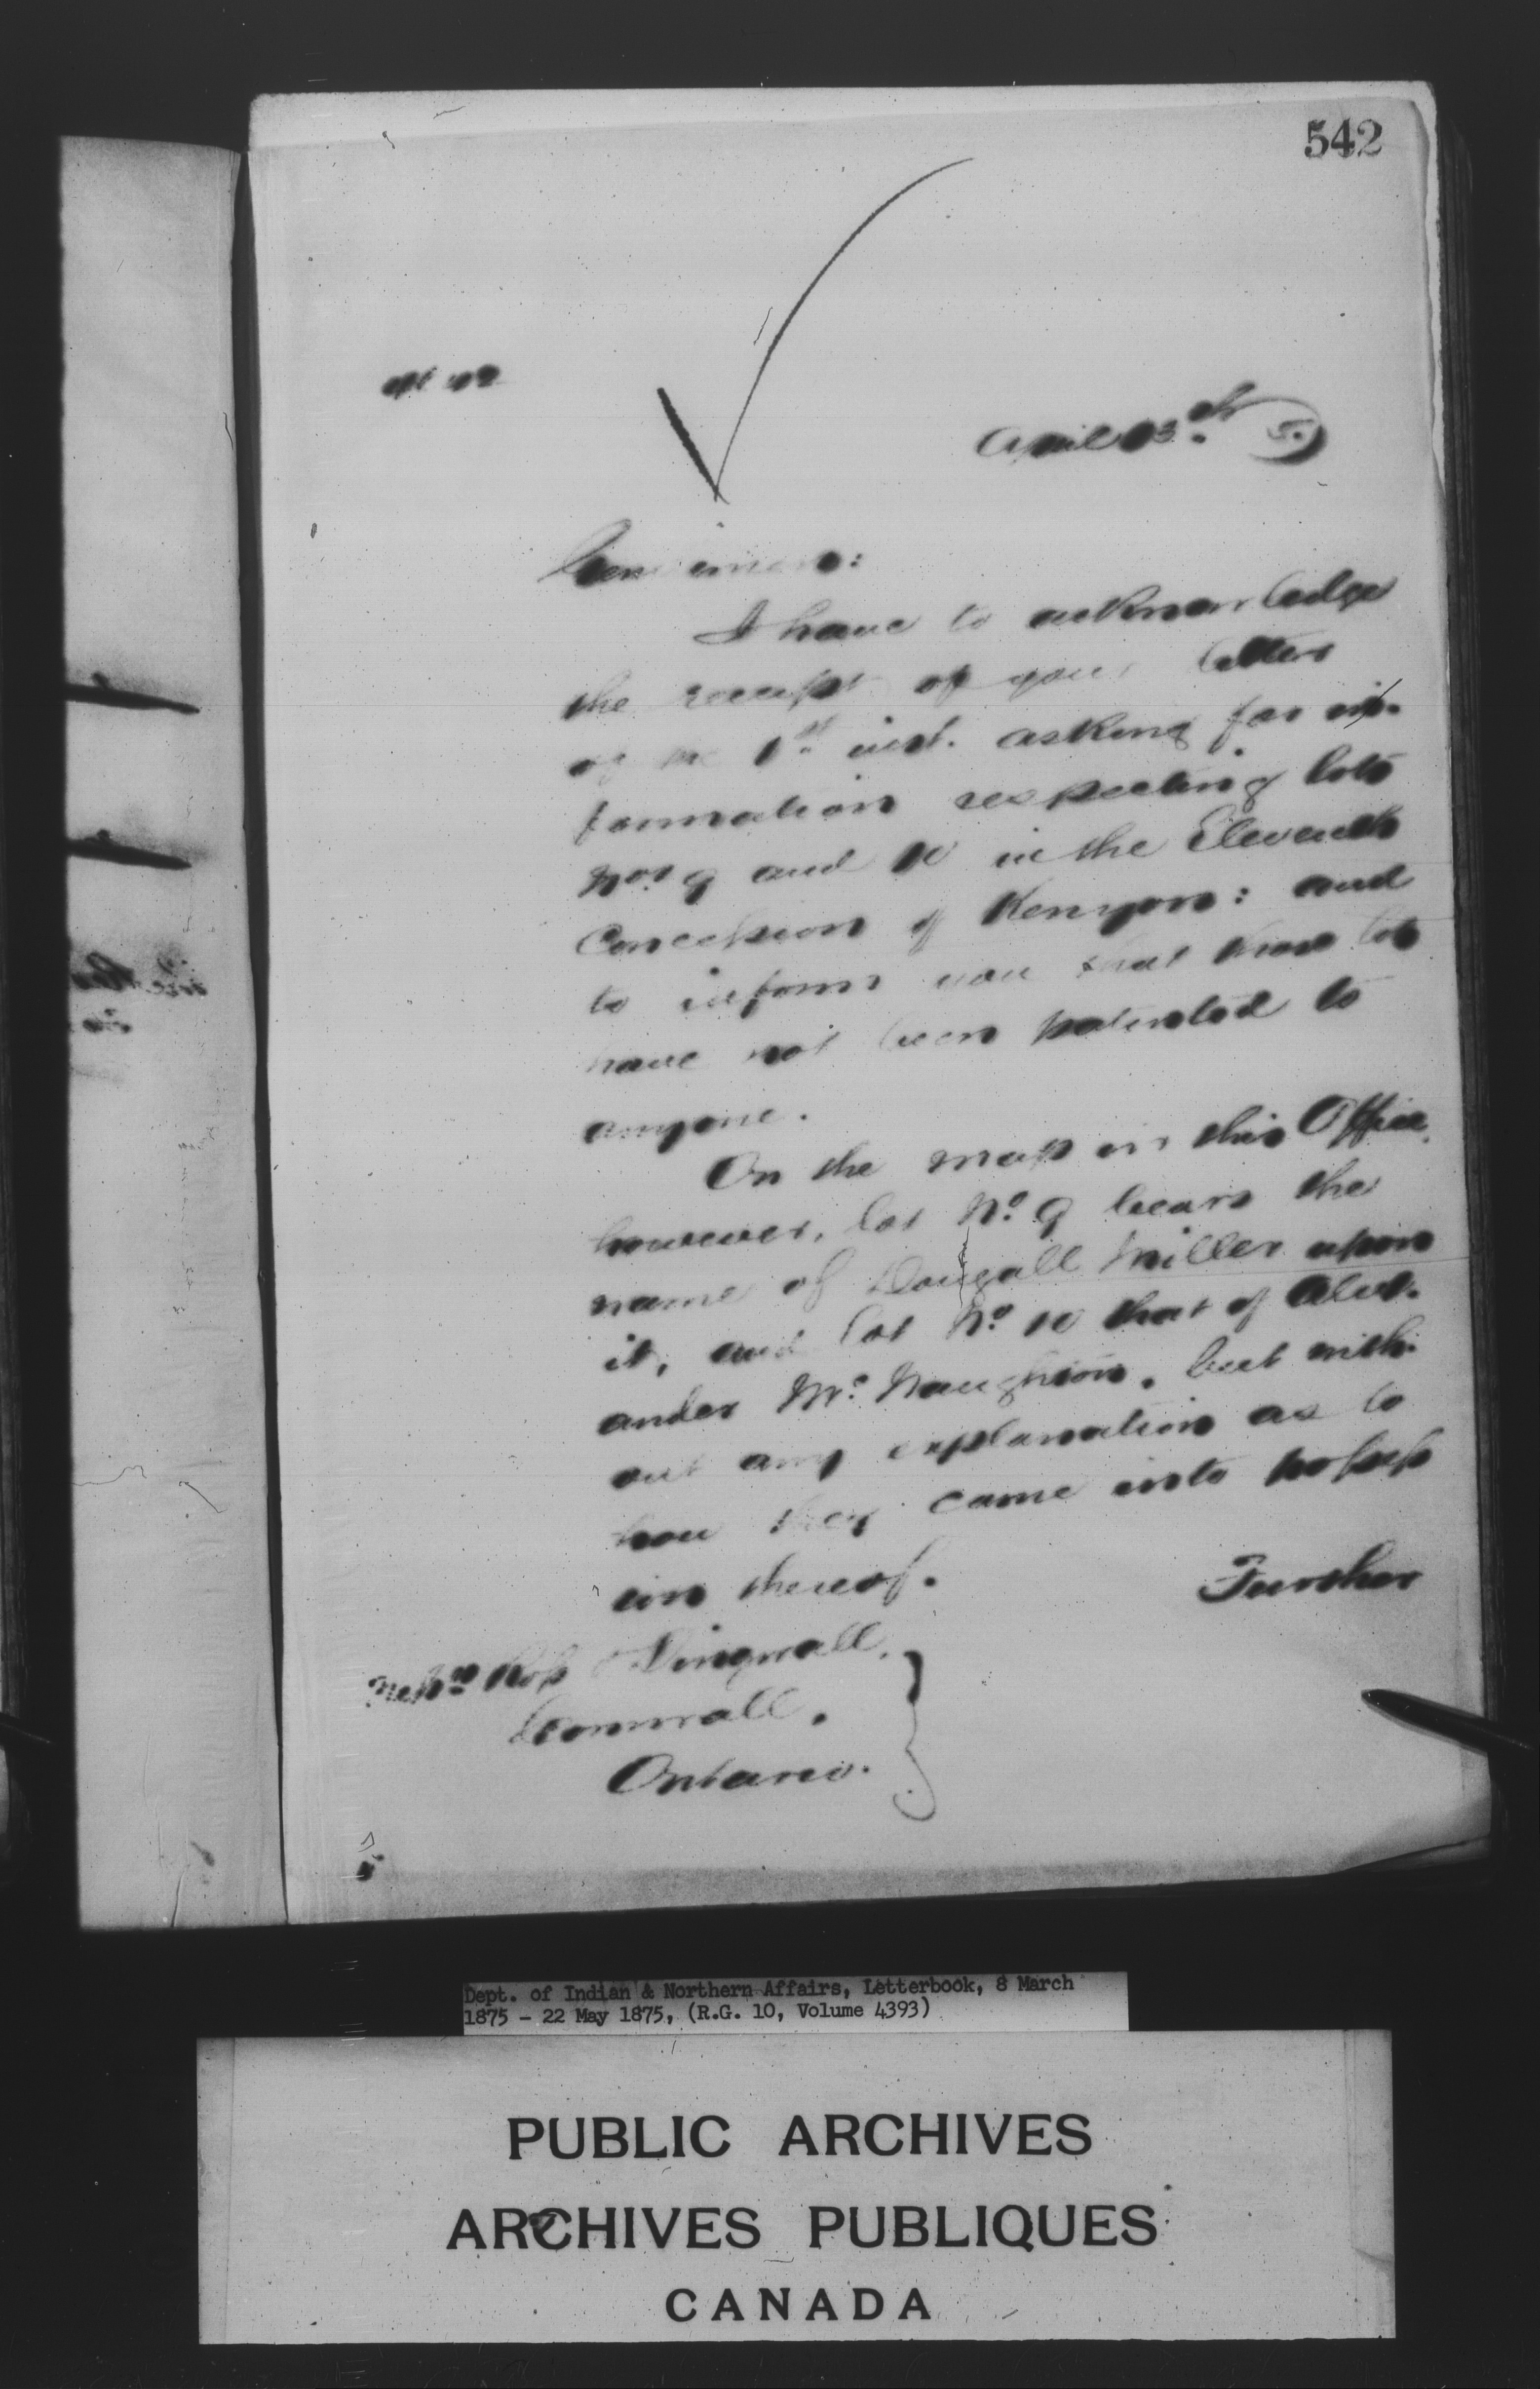 542
April 13th 5.
Gentlemen:
I have to acknowledge
the receipt of your letters
of the 1st inst. asking for in-
formation respecting lots
Nos. 9 and 10 in the Eleventh
Concession of Kenyon: and
to inform you that these lots
have not been patented to
anyone.
On the map in this Office,
however, lot No. 9 bears the
name of Dougall Miller upon
it, and lot No. 10 that of Alex-
ander McNaughton, but with-
out any explanation as to
how they came into possess
ion thereof.
Further
Messrs Ross & Dingwall,
Cornwall,
Ontario.
Dept. of Indian & Northern Affairs, Letterbook, 8 March
1875 - 22 May 1875, (R.G. 10, Volume 4393)
PUBLIC ARCHIVES
ARCHIVES PUBLIQUES
CANADA